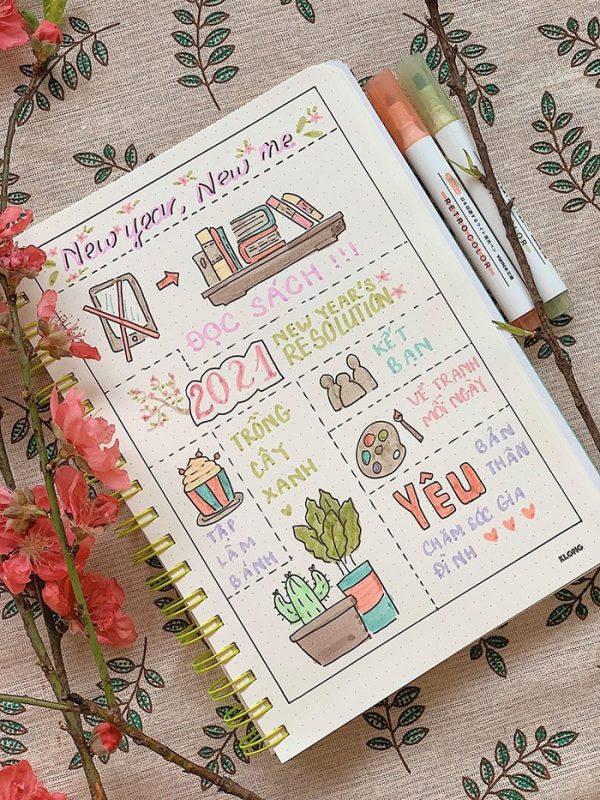 New year, New me
ĐỌC SÁCH !!!
2021
NEW YEAR'S
RESOLUTION
KẾT
BẠN
VẼ TRANH
MỖI NGÀY
TRỒNG
CÂY
XANH
TẬP
LÀM
BÁNH
YÊU
BẢN
THÂN
CHĂM SÓC GIA
ĐÌNH
KLONG
RETRO COLOR
COLOR